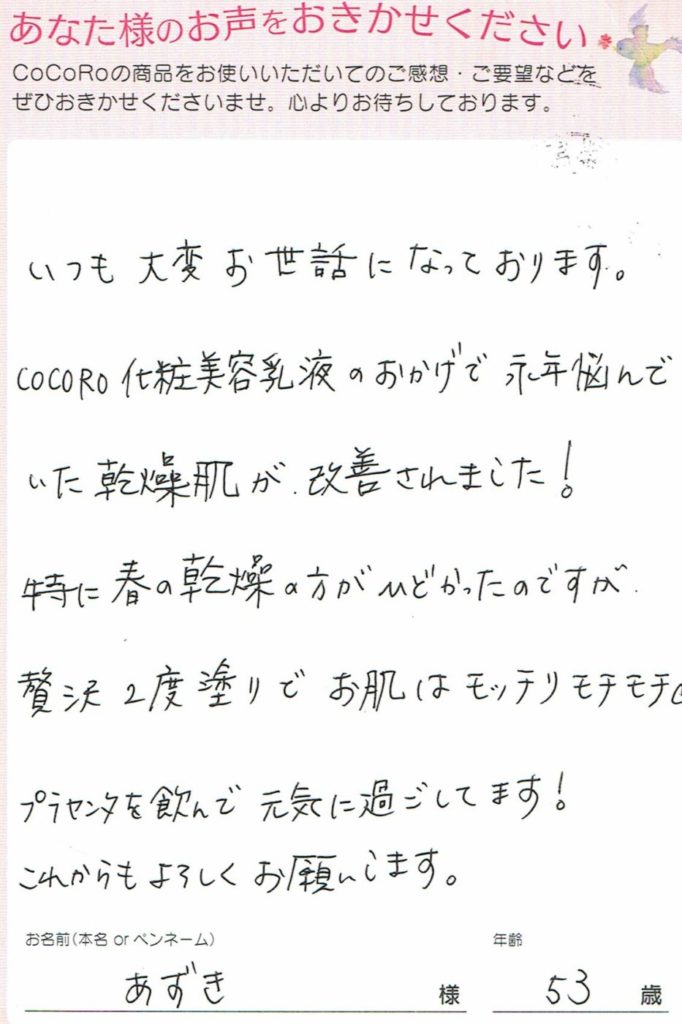 あなた様のお声をおきかせください
CoCoRoの商品をお使いいただいてのご感想・ご要望などを
ぜひおきかせくださいませ。心よりお待ちしております。
いつも大変お世話になっております。
COCORO化粧美容乳液のおかげで永年悩んで
いた乾燥肌が、改善されました！
特に春の乾燥の方がひどかったのですが、
贅沢2度塗りでお肌はモッチリモチモチ
プラセンタを飲んで元気に過ごしてます！
これからもよろしくお願いします。
お名前(本名 or ペンネーム)
年齢
あずき 様
53 歳